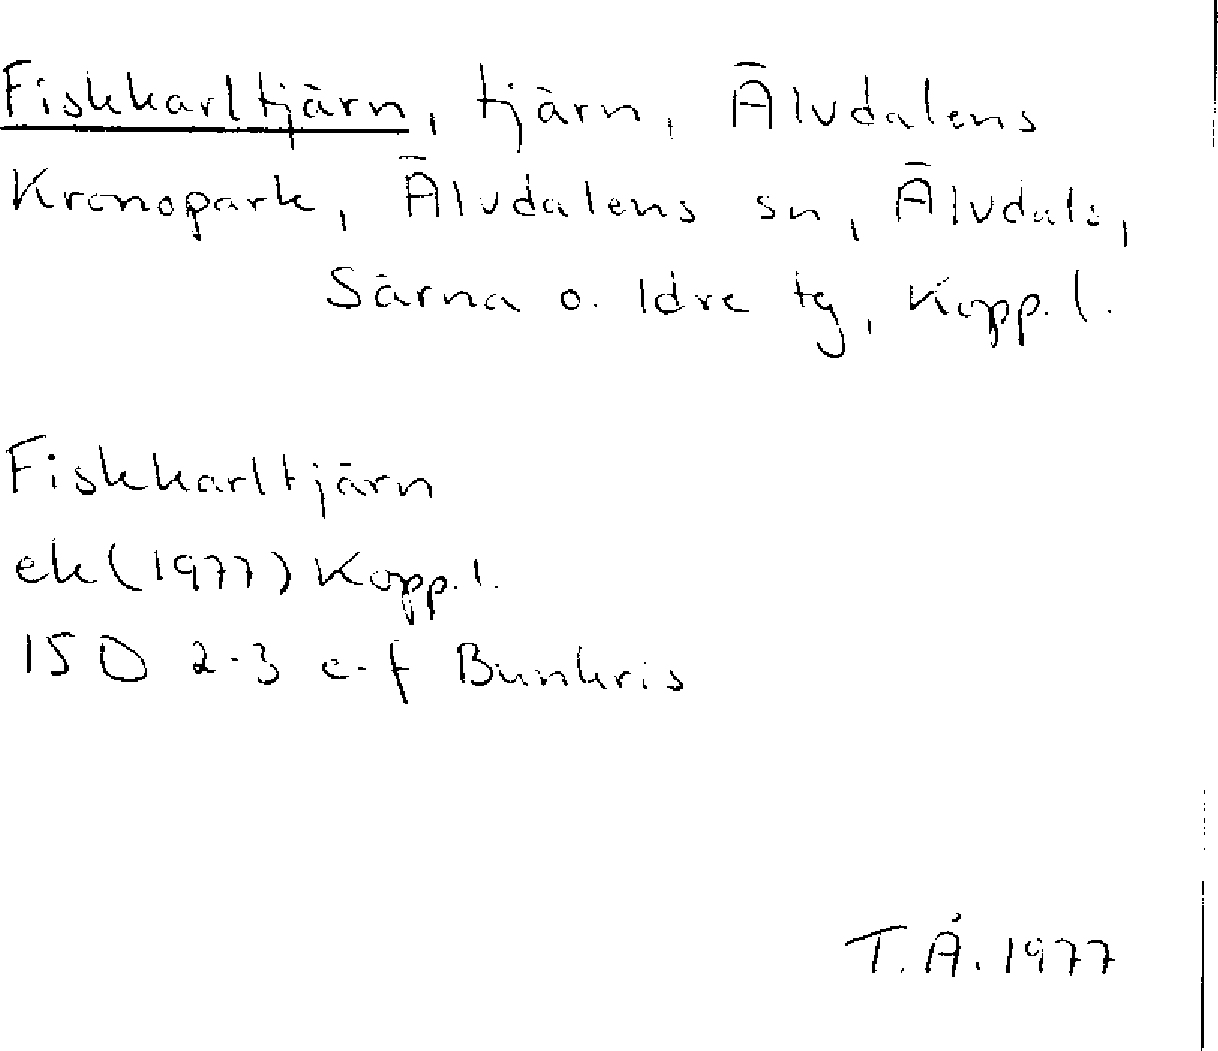 Fiskkarltjärn, tjärn, Älvdalens
Kronopark, Älvdalens sn, Älvdals,
Särna o. Idre tg, Kopp. l.
Fiskkarltjärn
ek (1977) Kopp. l.
15 D 2-3 e-f Bunkris
T.Å. 1977